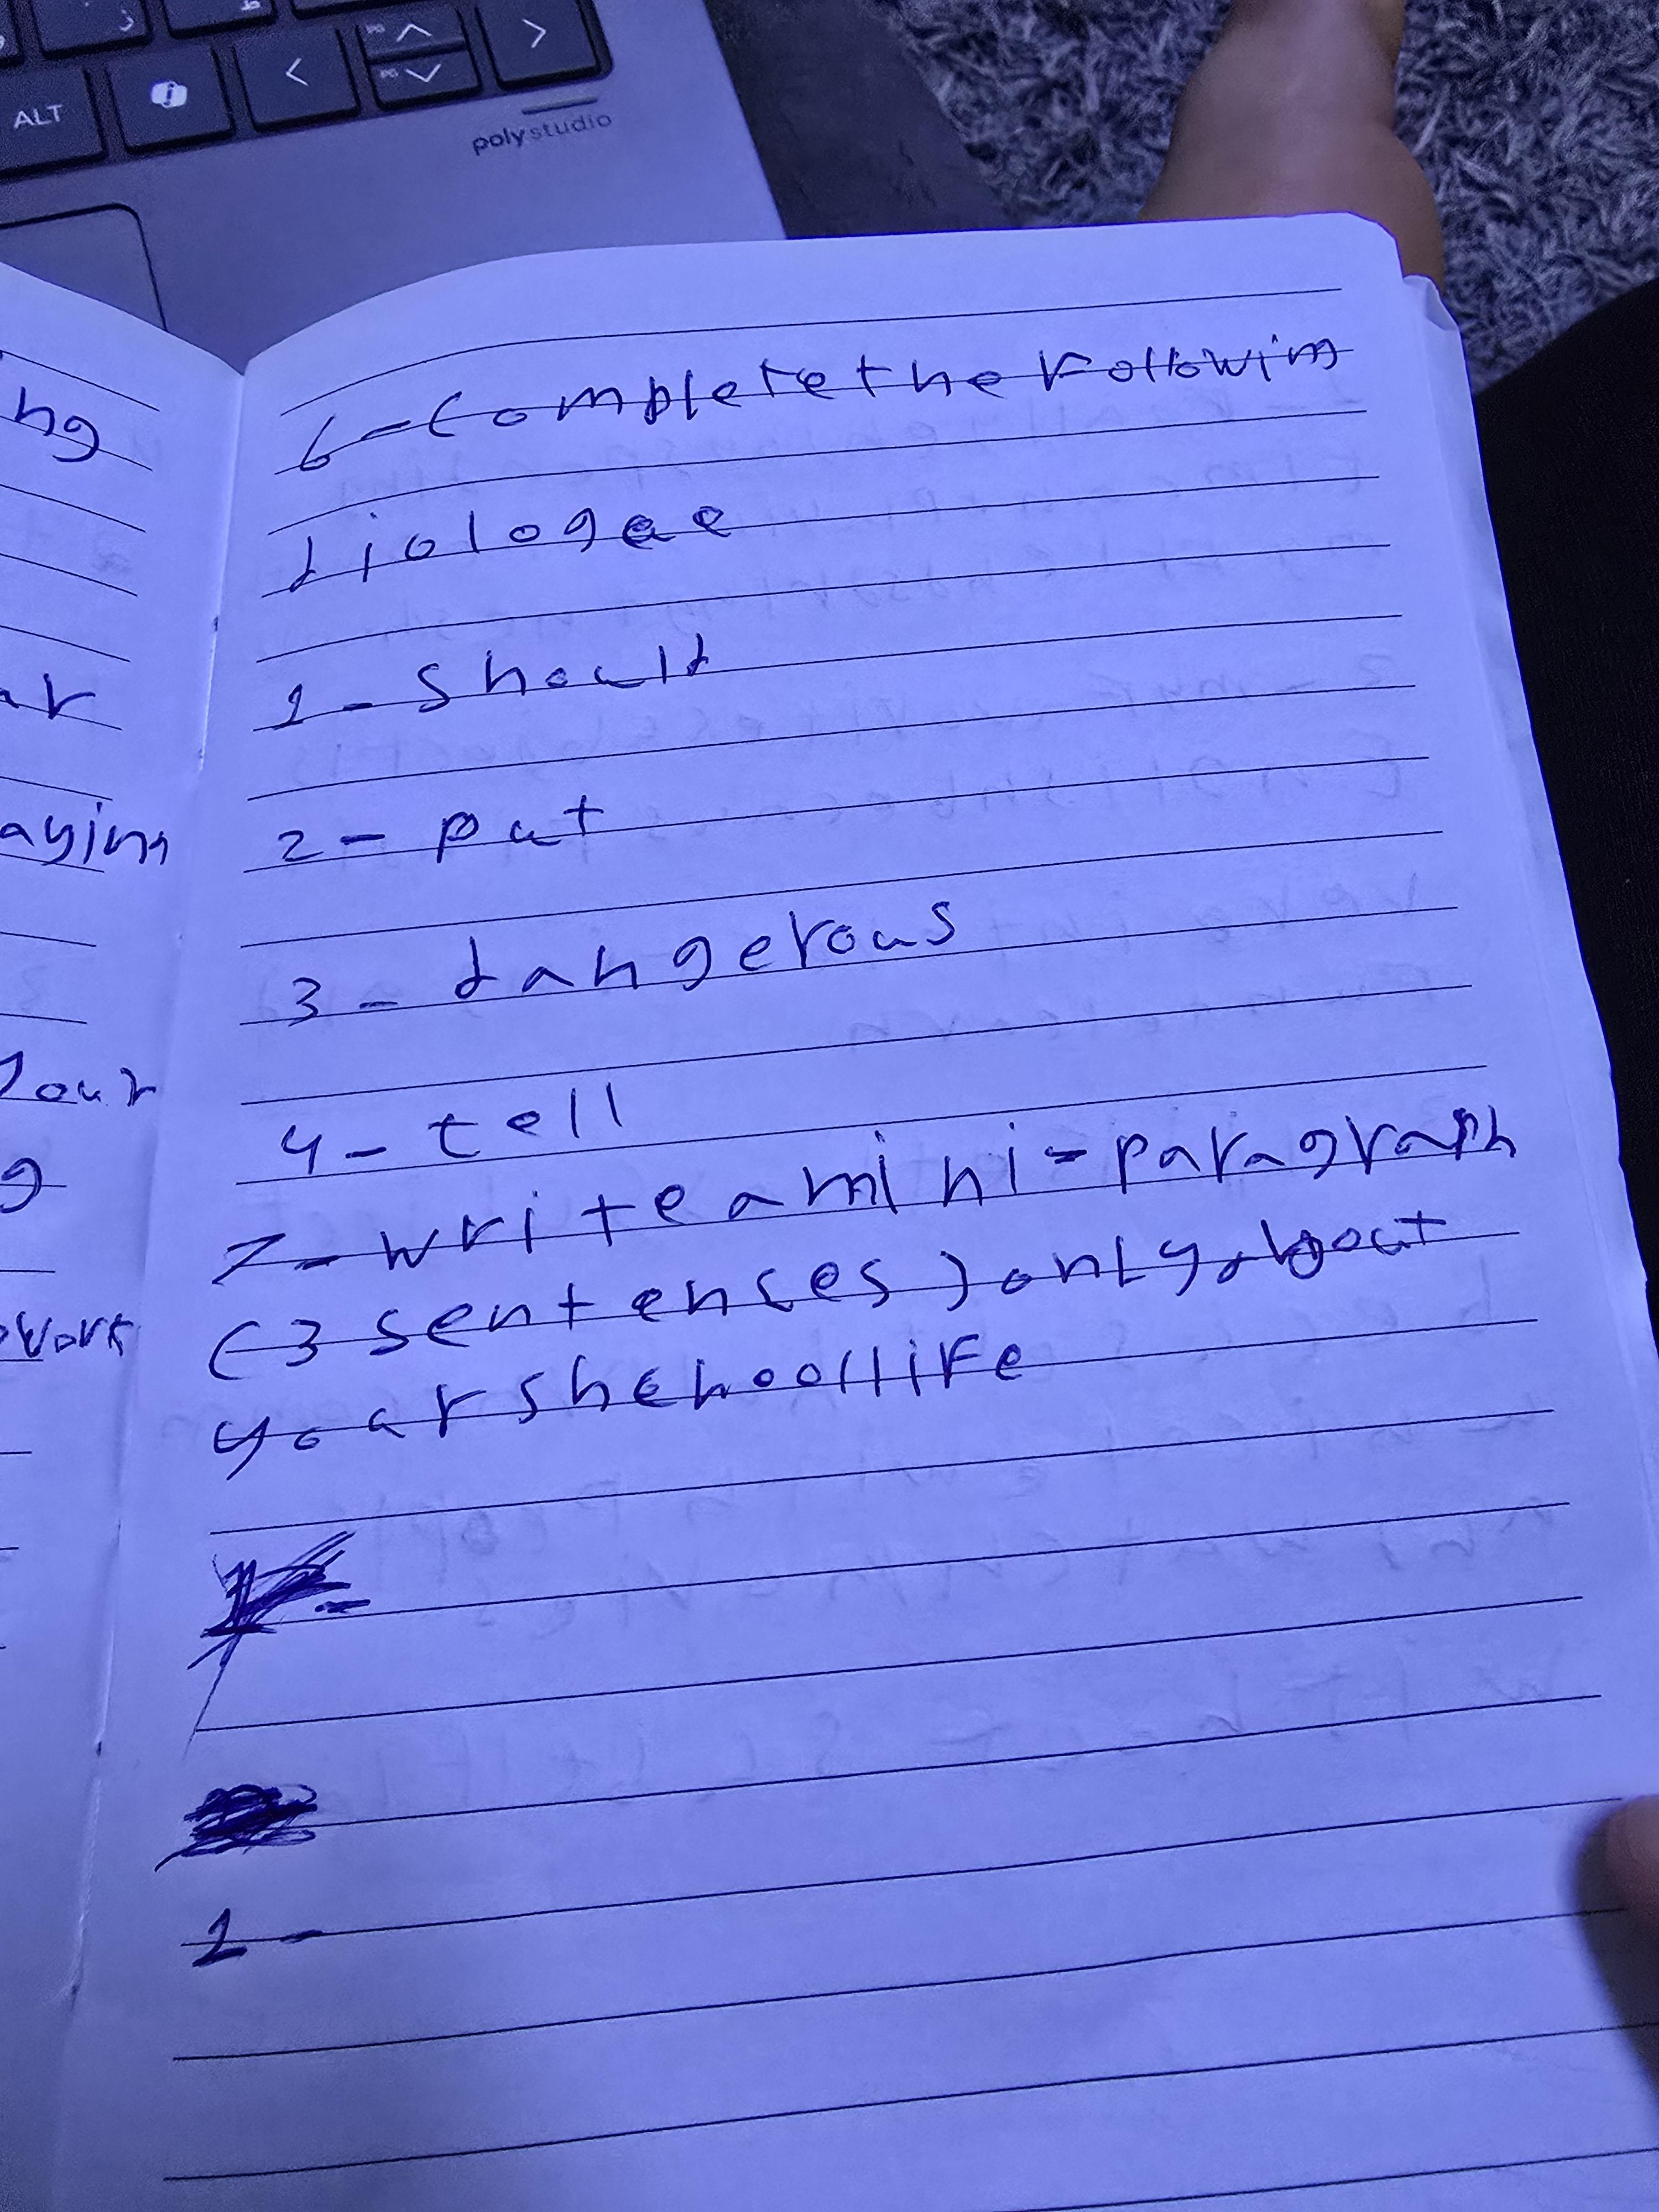 ALT
polystudio
ng
ar
aying
your
g
work
6-Complete the Following
diologee
1-Should
2-put
3-dangerous
4-tell
7-write a mini-paragraph
(3 sentences) only about
your shchool life
1-